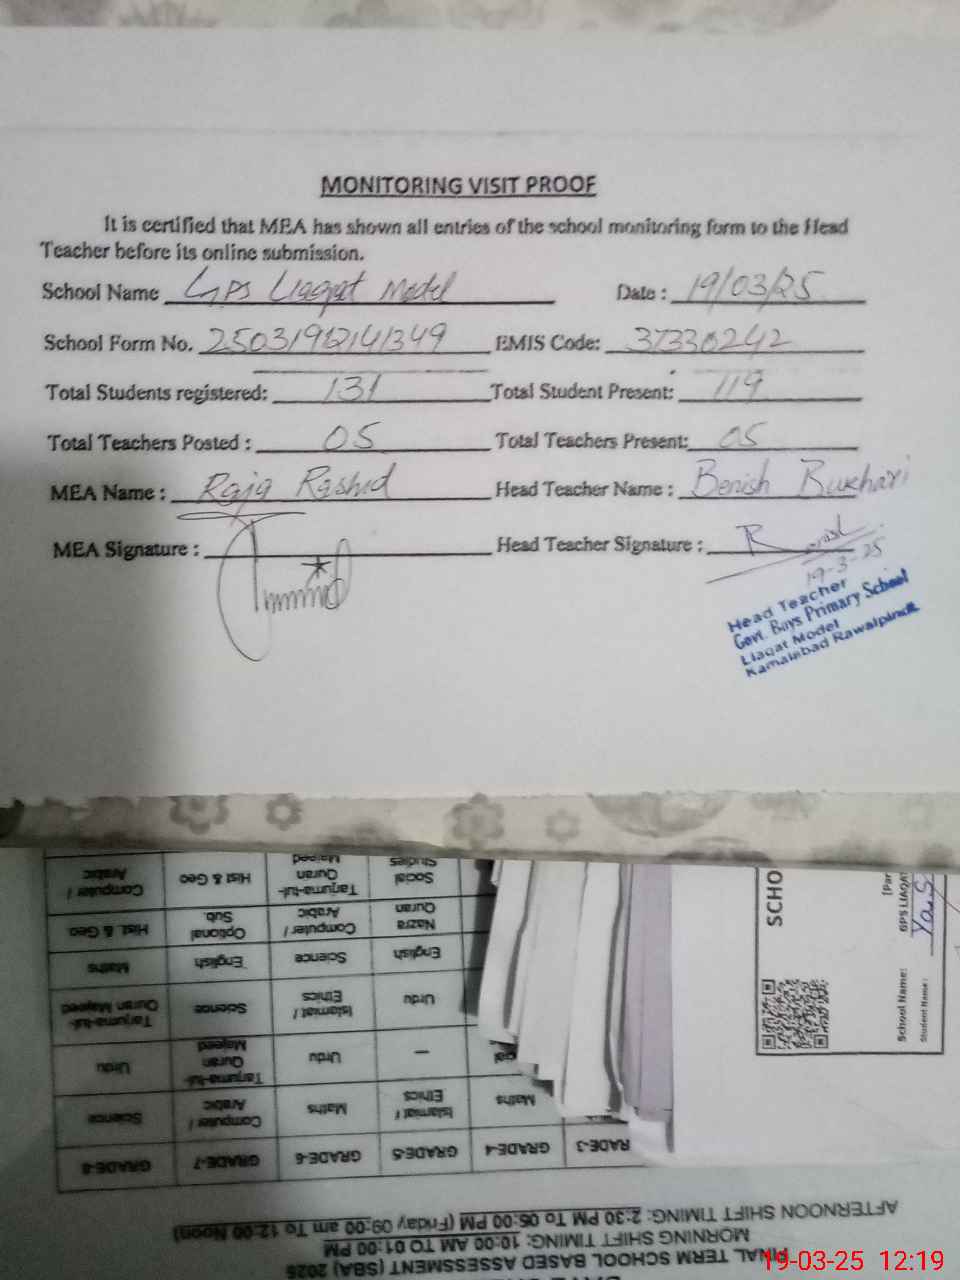 MONITORING VISIT PROOF
It is certified that MEA has shown all entries of the school monitoring form to the Head
Teacher before its online submission.
School Name GPS Liaqat Model Date : 19/03/25
School Form No. 25031912141349 EMIS Code: 37330242
Total Students registered: 131 Total Student Present: 119
Total Teachers Posted : 05 Total Teachers Present: 05
MEA Name : Raja Rashid Head Teacher Name : Benish Bukhari
MEA Signature : Head Teacher Signature :
19-3-25
Head Teacher
Govt. Boys Primary School
Liaqat Model
Kamalabad Rawalpindi
FINAL TERM SCHOOL BASED ASSESSMENT (SBA) 2025
MORNING SHIFT TIMING: 10:00 AM TO 01:00 PM
AFTERNOON SHIFT TIMING: 2:30 PM To 05:00 PM (Friday 09:00 am To 12:00 Noon)
RADE-3 GRADE-4 GRADE-5 GRADE-6 GRADE-7 GRADE-8
Maths Islamiat / Ethics Maths Computer / Arabic Science
— Urdu Tarjuma-tul-Quran Majeed Urdu
Urdu Islamiat / Ethics Science Tarjuma-tul-Quran Majeed
English Science English Maths
Nazra Quran Computer / Arabic Optional Sub. Hist. & Geo
Social Studies Tarjuma-tul-Quran Majeed Hist & Geo Computer / Arabic
SCHO
School Name: GPS LIAQAT
Student Name:
19-03-25 12:19